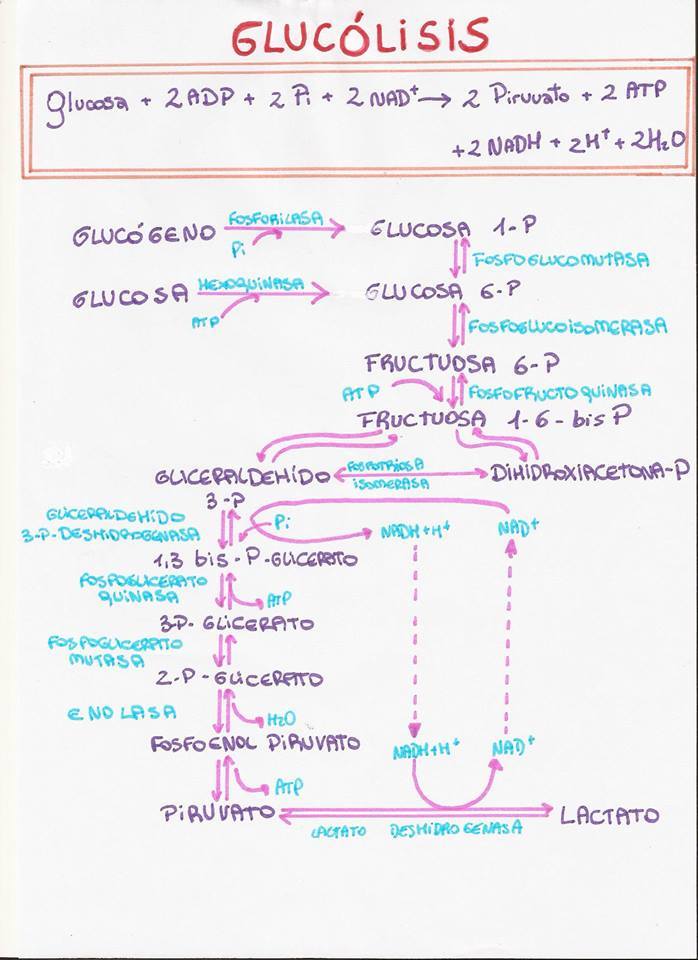 GLUCÓLISIS
glucosa + 2 ADP + 2 Pi + 2 NAD⁺ → 2 Piruvato + 2 ATP
+ 2 NADH + 2H⁺ + 2H₂O
GLUCÓGENO
FOSFORILASA
Pi
GLUCOSA 1-P
FOSFOGLUCOMUTASA
GLUCOSA
HEXOQUINASA
ATP
GLUCOSA 6-P
FOSFOGLUCOISOMERASA
FRUCTUOSA 6-P
ATP
FOSFOFRUCTOQUINASA
FRUCTUOSA 1-6-bis P
GLICERALDEHÍDO
3-P
FOSFOTRIOSA
ISOMERASA
DIHIDROXIACETONA-P
GLICERALDEHÍDO
3-P-DESHIDROGENASA
Pi
NADH+H⁺
NAD⁺
1,3 bis-P-GLICERATO
FOSFOGLICERATO
QUINASA
ATP
3-P-GLICERATO
FOSFOGLICERATO
MUTASA
2-P-GLICERATO
ENOLASA
H₂O
FOSFOENOL PIRUVATO
NADH+H⁺
NAD⁺
ATP
PIRUVATO
LACTATO DESHIDROGENASA
LACTATO